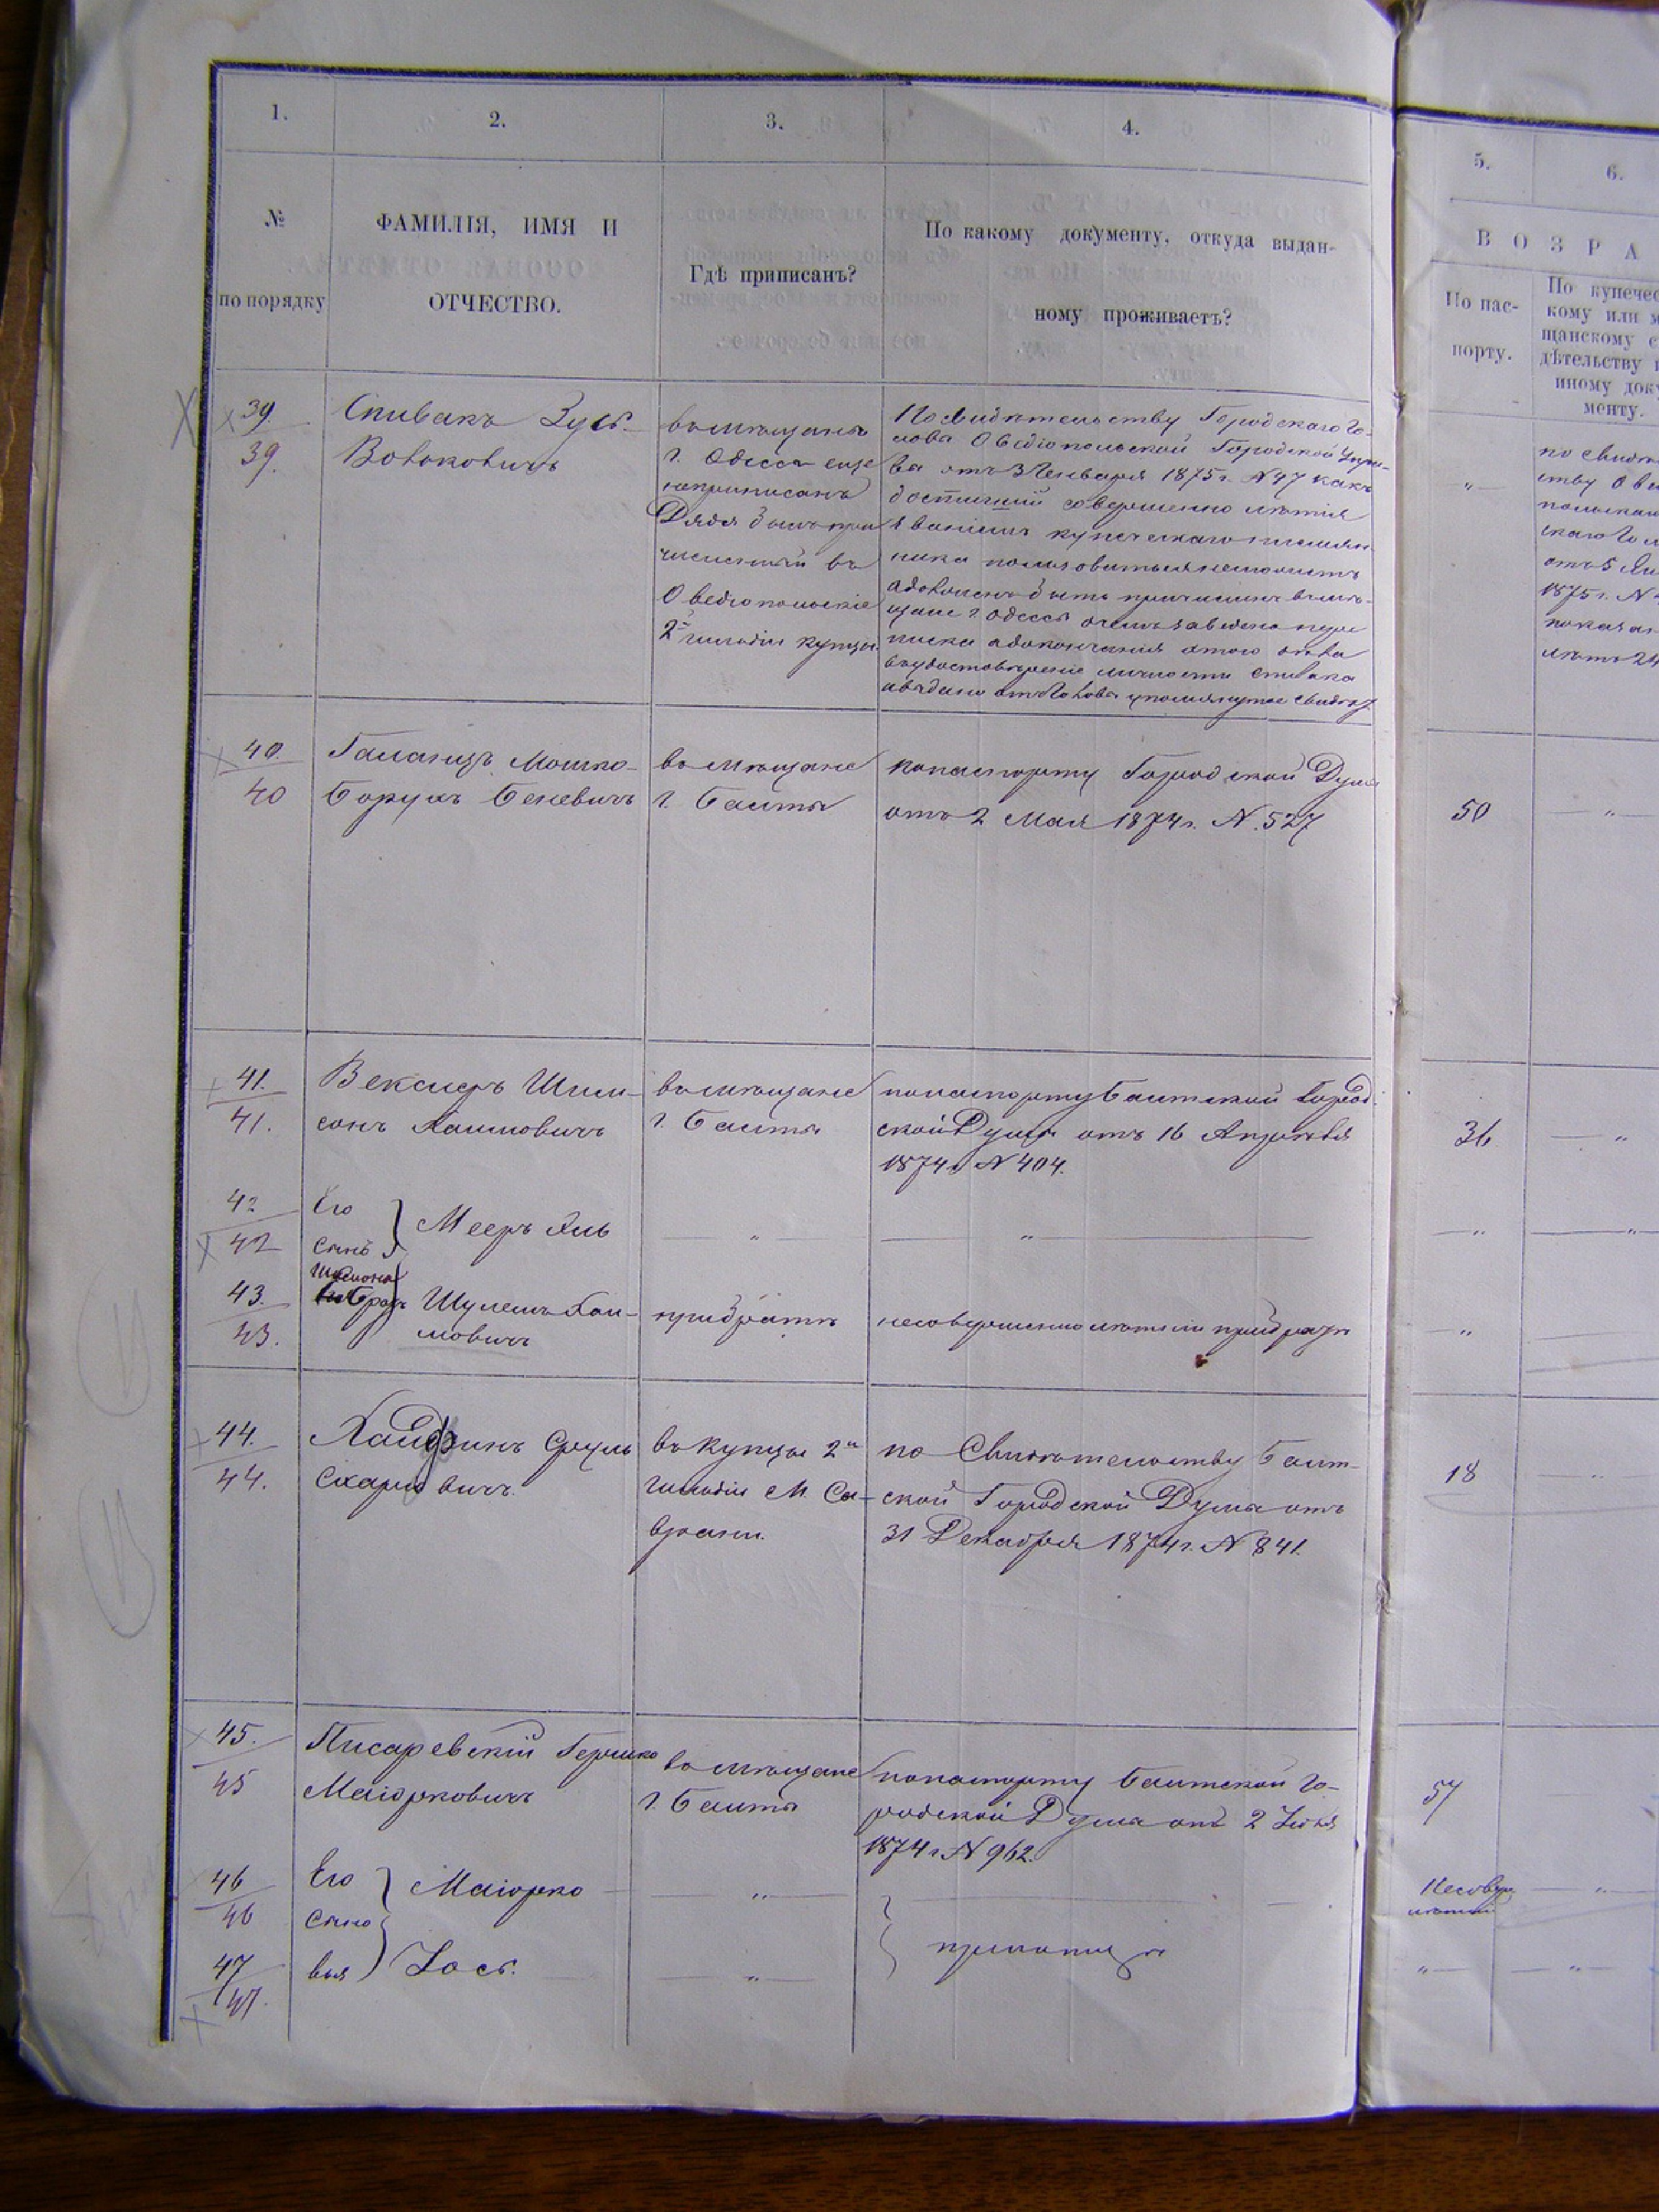 1.
2.
3.
4.
5.
6.
№
по порядку
ФАМИЛІЯ, ИМЯ И
ОТЧЕСТВО.
Гдѣ приписанъ?
По какому документу, откуда выдан-
ному проживаетъ?
ВОЗРА
По пас-
порту.
По купечес
кому или м
щанскому с
дѣтельству и
иному доку
менту.
39.
39.
Спивакъ Зусъ
Вольковичъ
въ мѣщаны
г. Одесса еще
неприписанъ
Дядя былъ при
численный въ
Овидіопольскіе
2й гильдіи купцы
По свидѣтельству Городскаго Го-
ловы Овидіопольской Городской Упра-
вы отъ 3 Генваря 1875 г. № 47 какъ
достигший совершеннолѣтія
званіемъ купеческаго племян-
ника пользоваться неможетъ
адолженъ быть причисленъ въ мѣ-
щане г. Одессы очемъ заведена пере
писка адокончанія этого дѣла
въ удостовѣреніе личности Спивака
упомянутое свидѣт.
по свидѣ
ству Ови
польска
скаго Гол
отъ 5 Ян
1875 г. №
показан
лѣтъ 24
40.
40
Галанцъ Мошко-
Борухъ Беневичъ
въ мѣщане
г. Балты
попаспорту Городской Думы
отъ 2 Мая 1874 г. №. 527
50
41.
41.
Векслеръ Шим-
сонъ Хаимовичъ
въ мѣщане
г. Балты
попаспорту Балтской Город.
ской Думы отъ 16 Апрѣля
1874 г. № 404.
36
42
42
Его
Сынъ
Мееръ Хиль
43.
43.
Шимсона
Братъ
Шулемъ Хаи-
мовичъ
прибратѣ
несовершеннолѣтній прибратѣ
44.
44.
Хайфинъ Сруль
Схаровичъ.
въ купцы 2й
гильдіи М. Са-
врани.
по Свидѣтельству Балт-
ской Городской Думы отъ
31 Декабря 1874 г. № 841.
18
45.
45
Писаревскій Гершко
Маіорковичъ
въ мѣщане
г. Балты
попаспорту Балтской Го-
родской Думы отъ 2 Іюня
1874 г. № 962.
57
46
46
Его
Сыно
вья
Маіорко
Несовер
лѣтній
47
47.
Іось.
приотцѣ